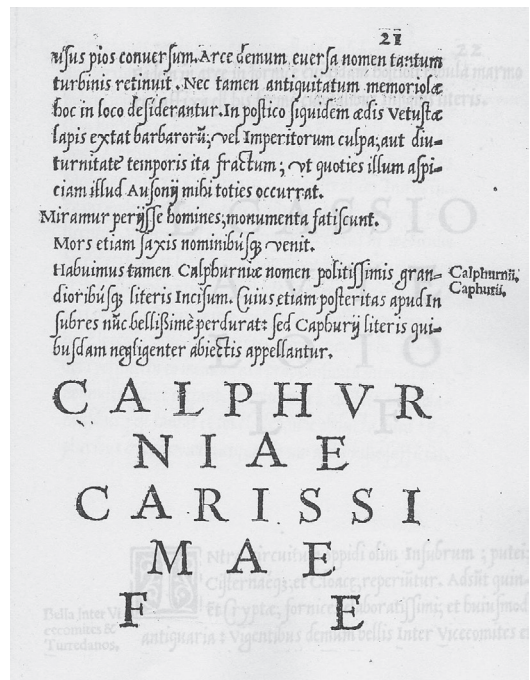 21
usus pios conversum. Arce demum eversa nomen tantum
turbinis retinuit. Nec tamen antiquitatum memoriolæ
hoc in loco desiderantur. In postico siquidem ædis Vetustæ
lapis extat barbarorũ; vel Imperitorum culpa; aut diu-
turnitate temporis ita fractum; vt quoties illum aspi-
ciam illud Ausonij mihi toties occurrat.
Miramur perijsse homines; monumenta fatiscunt.
Mors etiam saxis nominibusq; venit.
Habuimus tamen Calphurniæ nomen politissimis gran-
dioribusq; literis Incisum. Cuius etiam posteritas apud In
subres nũc bellissimè perdurat: sed Caphurij literis qui-
busdam negligenter abiectis appellantur.
Calphurnii,
Caphurii,
CALPHVR
NIAE
CARISSI
MAE
F E